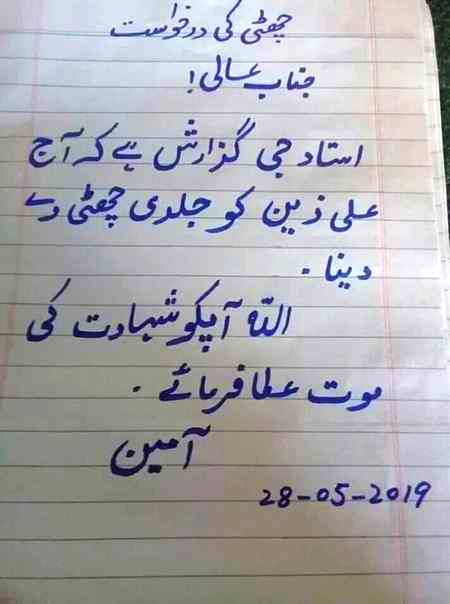 چھٹی کی درخواست
جناب عالی!
استاد جی گزارش ہے کہ آج
علی ذین کو جلدی چھٹی دے
دینا۔
اللہ آپکو شہادت کی
موت عطا فرمائے۔
آمین
28-05-2019